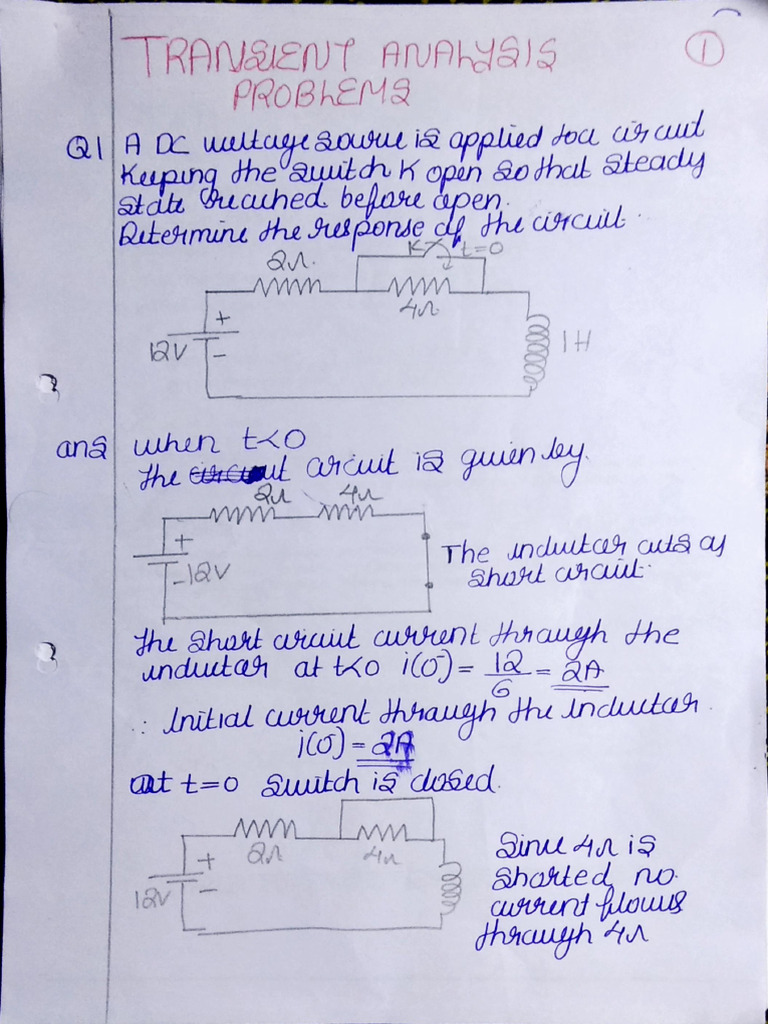 TRANSIENT ANALYSIS
PROBLEMS
1
Q1 A DC voltage source is applied to a circuit
Keeping the switch K open so that steady
state reached before open.
Determine the response of the circuit.
K t=0
2Ω
4Ω
12V
+
-
1H
ans when t<0
The circuit is given by.
2Ω 4Ω
+
-12V
The inductor acts as
short circuit.
The short circuit current through the
inductor at t<0 i(0⁻) = 12/6 = 2A
∴ Initial current through the inductor.
i(0⁻) = 2A
at t=0 switch is closed.
2Ω
4Ω
12V
+
-
Since 4Ω is
shorted no.
current flows
through 4Ω